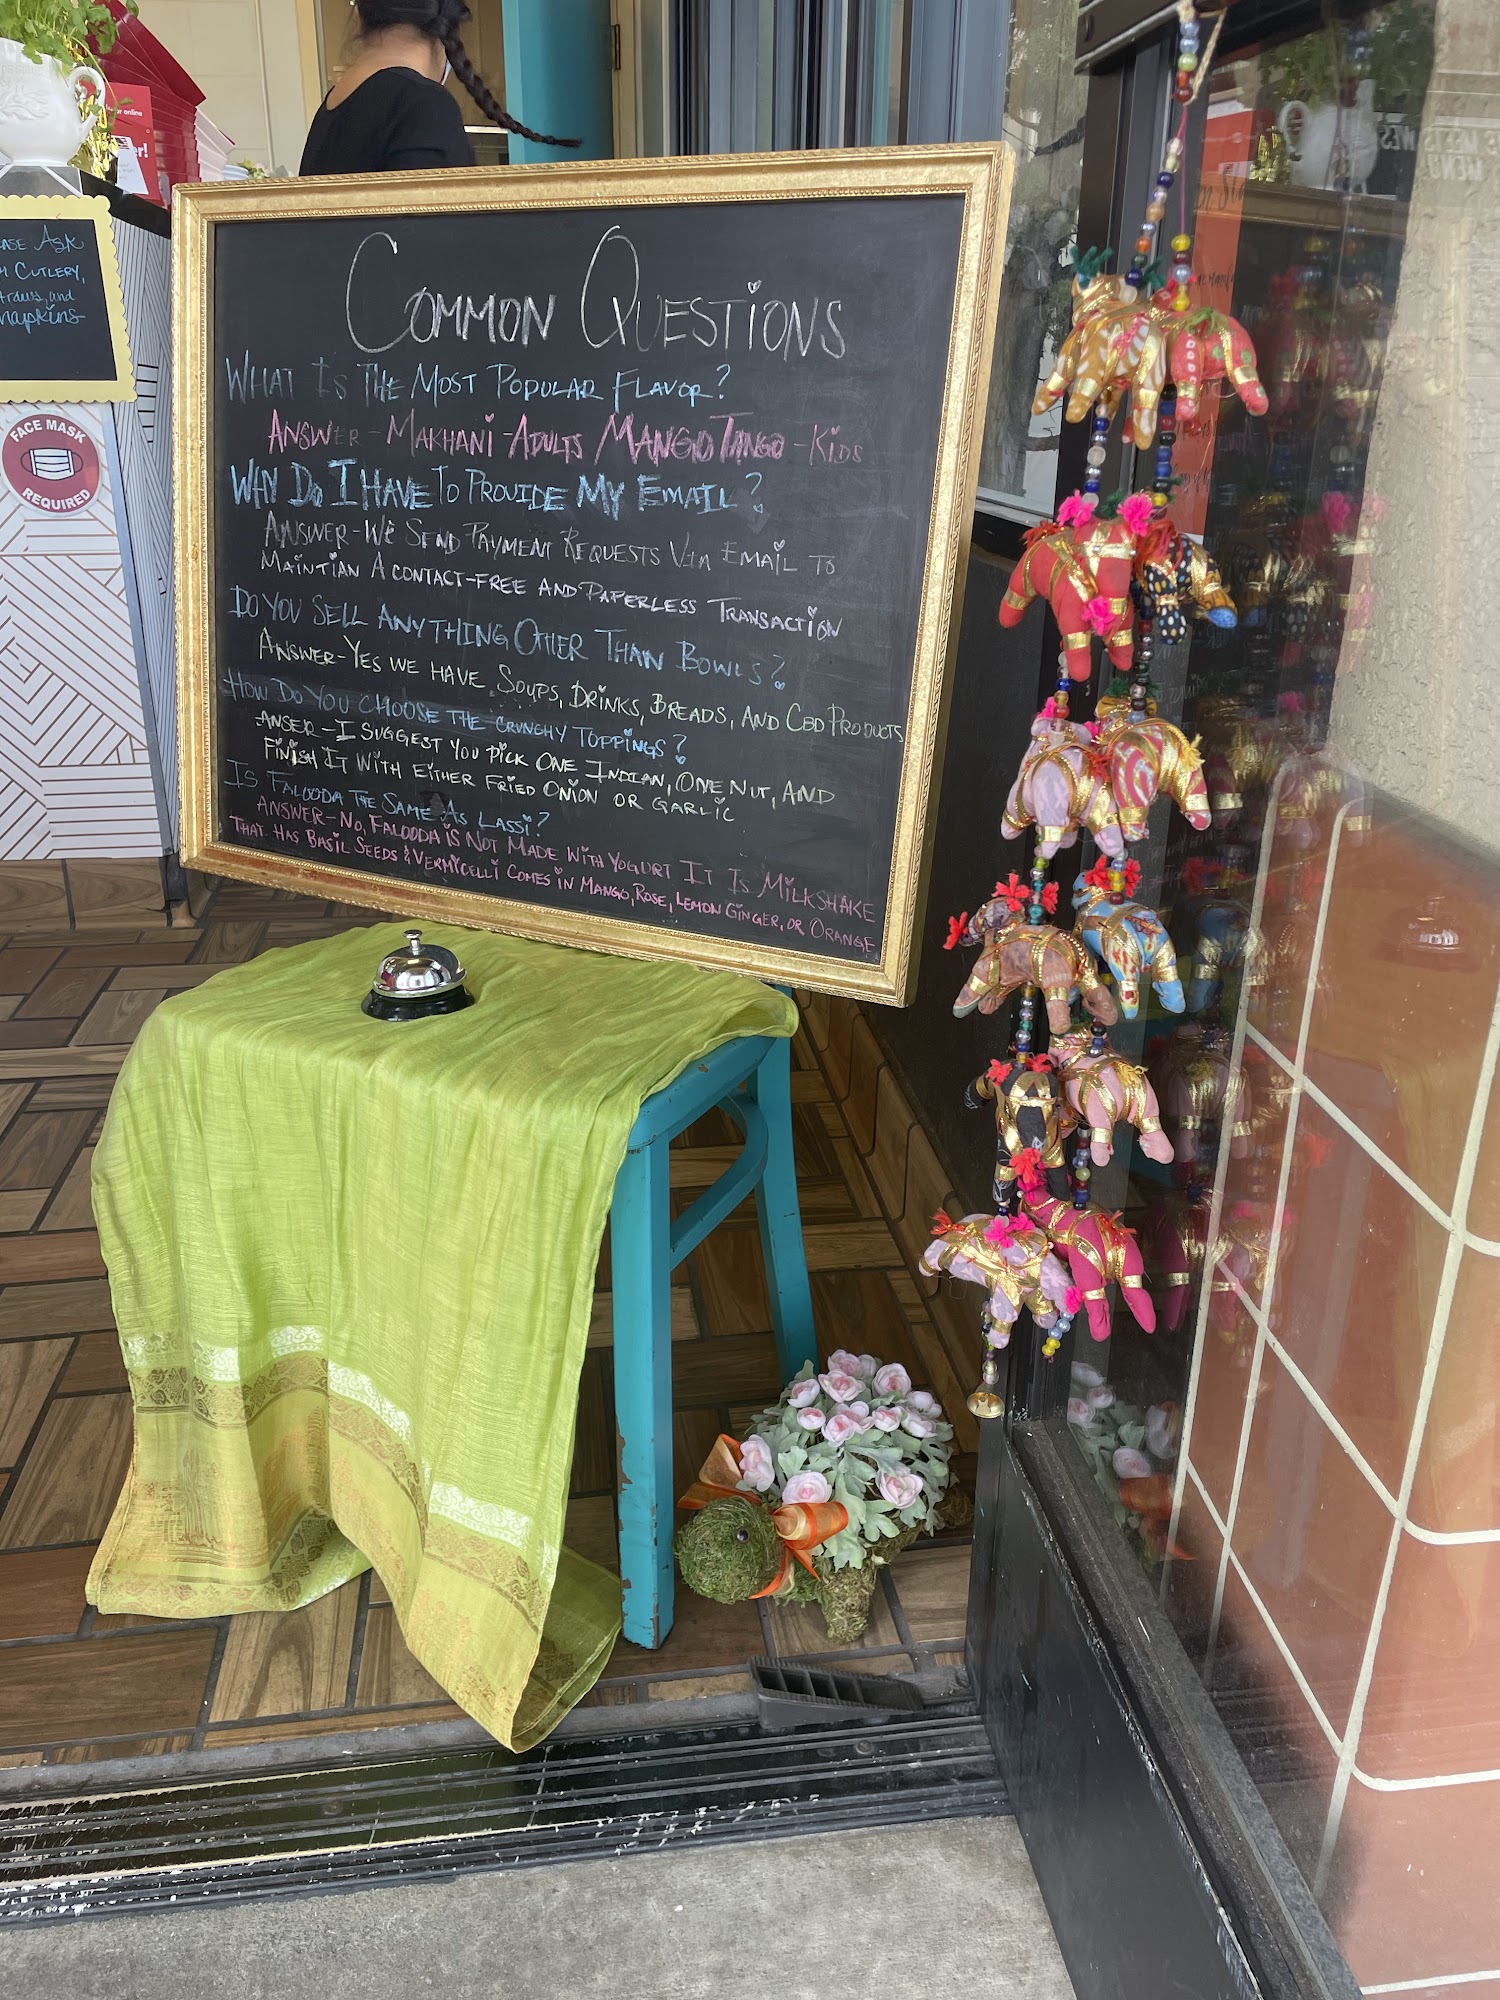 COMMON QUESTIONS
WHAT IS THE MOST POPULAR FLAVOR?
ANSWER - MAKHANI - ADULTS MANGO TANGO - KIDS
WHY DO I HAVE TO PROVIDE MY EMAIL?
ANSWER - WE SEND PAYMENT REQUESTS VIA EMAIL TO
MAINTIAN A CONTACT-FREE AND PAPERLESS TRANSACTION
DO YOU SELL ANYTHING OTHER THAN BOWLS?
ANSWER - YES WE HAVE SOUPS, DRINKS, BREADS, AND CBD PRODUCTS
HOW DO YOU CHOOSE THE CRUNCHY TOPPINGS?
ANSER - I SUGGEST YOU PICK ONE INDIAN, ONE NUT, AND
FINISH IT WITH EITHER FRIED ONION OR GARLIC
IS FALOODA THE SAME AS LASSI?
ANSWER - NO, FALOODA IS NOT MADE WITH YOGURT IT IS MILKSHAKE
THAT HAS BASIL SEEDS & VERMICELLI COMES IN MANGO, ROSE, LEMON GINGER, OR ORANGE
ASK
CUTLERY,
and
napkins
FACE MASK
REQUIRED
online
MENU